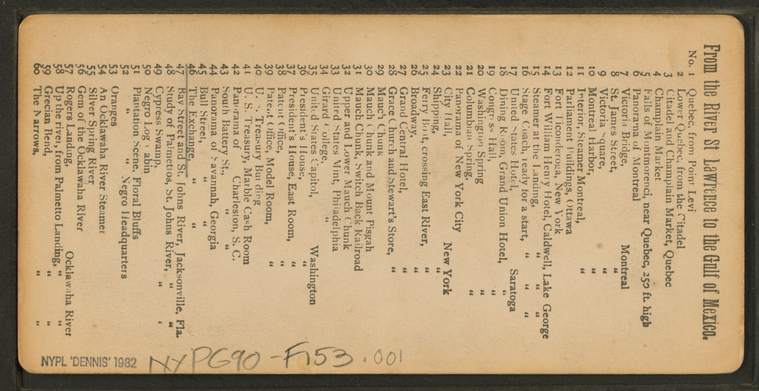 From the River St Lawrence to the Gulf of Mexico.
No. 1 Quebec, from Point Levi
2 Lower Quebec, from the Citadel
3 Citadel and Champlain Market, Quebec
4 Champlain Market
5 Falls of Montmorenci, near Quebec, 250 ft. high
6 Panorama of Montreal
7 Victoria Bridge, Montreal
8 St. James Street, "
9 Victoria Square, "
10 Montreal Harbor, "
11 Interior, Steamer Montreal, "
12 Parliament Buildings, Ottawa
13 Fort Ticonderoga, New York
14 Fort William Henry Hotel, Caldwell, Lake George
15 Steamer at the Landing, " "
16 Stage Coach, ready for a start, " "
17 United States Hotel, Saratoga
18 Dining Room, Grand Union Hotel, "
19 Congress Hall, "
20 Washington Spring "
21 Columbian Spring, "
22 Panorama of New York City
23 City Hall, New York
24 Shipping, "
25 Ferry Boat, crossing East River, "
26 Broadway, "
27 Grand Central Hotel, "
28 Grace Church and Stewart's Store, "
29 Mauch Chunk
30 Mauch Chunk and Mount Pisgah
31 Mauch Chunk, Switch Back Railroad
32 Upper and Lower Mauch Chunk
33 United States Mint, Philadelphia
34 Girard College, "
35 United States Capitol, Washington
36 President's House, "
37 President's House, East Room, "
38 Patent Office, "
39 Patent Office, Model Room, "
40 U. S. Treasury Building "
41 U. S. Treasury, Marble Cash Room
42 Panorama of Charleston, S. C.
43 South Battery St., "
44 Panorama of Savannah, Georgia
45 Bull Street, "
46 The Exchange, "
47 Bay Street and St. Johns River, Jacksonville, Fla.
48 Steamer Nocomis, St. Johns River, "
49 Cypress Swamp, "
50 Negro Log Cabin "
51 Plantation Scene, Floral Bluffs
52 " Negro Headquarters
53 Oranges
54 An Ocklawaha River Steamer
55 Silver Spring River
56 Gem of the Ocklawaha River
57 Rogers Landing, Ocklawaha River
58 Up the river, from Palmetto Landing, "
59 Grecian Bend, "
60 The Narrows, "
NYPL 'DENNIS' 1982
NYPG90-F153.001